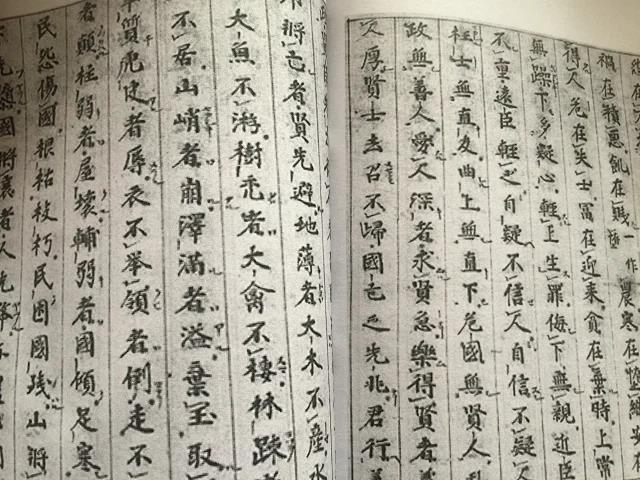 禍在積惡飢在賤一作農寒在惰織
得人危在失士冨在迎来貪在棄時上常
無躁下多疑心輕上生罪侮下無親近臣
不重遠臣輕之自疑不信人自信不疑人
枉士無直友曲上無直下危國無賢人乱
政無善人愛人深者求賢急樂得賢者
人厚賢士去召不帰國亡之先兆君行
將亡者賢先避地薄者大木不産水
大魚不游樹禿者大禽不棲林疎者
不居山峭者崩澤滿者溢棄玉取
羊質虎皮者辱衣不舉領者倒走不
者顛柱弱者屋壞輔弱者國傾足寒
民怨傷國根枯枝朽民困國残山將
國將衰者人先